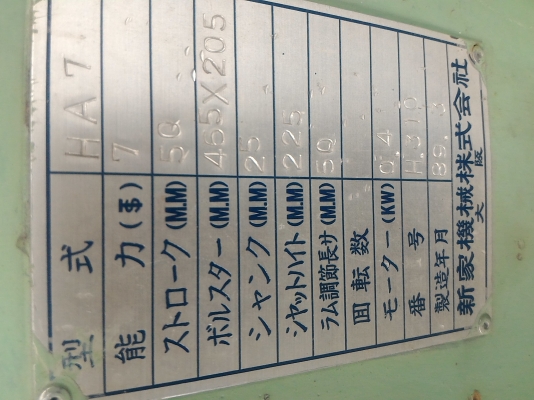 型式 HA7
能力(トン) 7
ストローク(M.M) 50
ボルスター(M.M) 465X205
シャンク(M.M) 25
シャットハイト(M.M) 225
ラム調節長サ(M.M) 50
回転数
モーター(KW) 0.4
番号 H.310
製造年月 89.3
新家機械株式会社
大阪